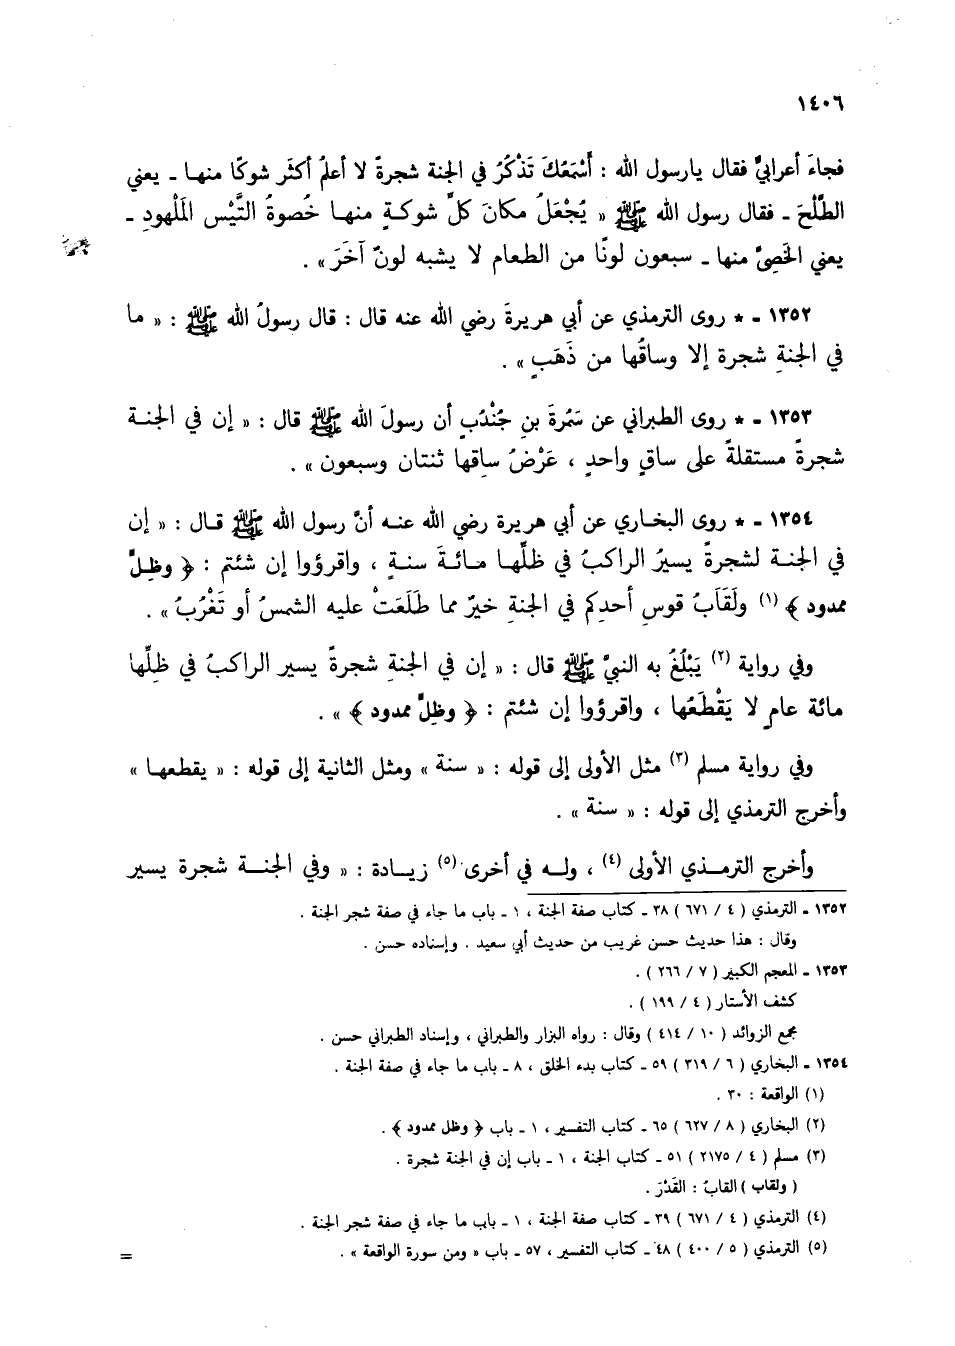 ١٤٠٦
فجاءَ أعرابيٌّ فقال يارسول الله : أَسْمَعُكَ تَذْكُرُ في الجنة شجرةً لا أعلمُ أكثَر شوكًا منها ـ يعني
الطَّلْحَ ـ فقال رسول الله ﷺ « يُجْعَلُ مكانَ كلِّ شوكةٍ منها خُصوةُ التَّيْس المَلْهودِ ـ
يعني الخَصِيَّ منها ـ سبعون لونًا من الطعام لا يشبه لونٌ آخَرَ » .
١٣٥٢ ـ * روى الترمذي عن أبي هريرةَ رضي الله عنه قال : قال رسولُ الله ﷺ : « ما
في الجنةِ شجرة إلا وساقُها من ذَهَبٍ » .
١٣٥٣ ـ * روى الطبراني عن سَمُرةَ بنِ جُنْدُبٍ أن رسولَ الله ﷺ قال : « إن في الجنة
شجرةً مستقلةً على ساقٍ واحدٍ ، عَرْضُ ساقِها ثنتان وسبعون » .
١٣٥٤ ـ * روى البخاري عن أبي هريرة رضي الله عنه أنَّ رسول الله ﷺ قال : « إن
في الجنة لشجرةً يسيرُ الراكبُ في ظلِّها مائةَ سنةٍ ، واقرؤوا إن شئتم : ﴿ وظِلٍّ
ممدود ﴾ (١) ولَقَابُ قوسِ أحدِكم في الجنةِ خيرٌ مما طَلَعَتْ عليه الشمسُ أو تَغْرُبُ » .
وفي رواية (٢) يَبْلُغُ به النبيَّ ﷺ قال : « إن في الجنةِ شجرةً يسير الراكبُ في ظلِّها
مائة عامٍ لا يَقْطَعُها ، واقرؤوا إن شئتم : ﴿ وظِلٍّ ممدود ﴾ » .
وفي رواية مسلم (٣) مثل الأولى إلى قوله : « سنة » ومثل الثانية إلى قوله : « يقطعها »
وأخرج الترمذي إلى قوله : « سنة » .
وأخرج الترمذي الأولى (٤) ، وله في أخرى (٥) زيادة : « وفي الجنة شجرة يسير
١٣٥٢ ـ الترمذي ( ٤ / ٦٧١ ) ٣٨ ـ كتاب صفة الجنة ، ١ ـ باب ما جاء في صفة شجر الجنة .
وقال : هذا حديث حسن غريب من حديث أبي سعيد . وإسناده حسن .
١٣٥٣ ـ المعجم الكبير ( ٧ / ٢٦٦ ) .
كشف الأستار ( ٤ / ١٩٩ ) .
مجمع الزوائد ( ١٠ / ٤١٤ ) وقال : رواه البزار والطبراني ، وإسناد الطبراني حسن .
١٣٥٤ ـ البخاري ( ٦ / ٣١٩ ) ٥٩ ـ كتاب بدء الخلق ، ٨ ـ باب ما جاء في صفة الجنة .
(١) الواقعة : ٣٠ .
(٢) البخاري ( ٨ / ٦٢٧ ) ٦٥ ـ كتاب التفسير ، ١ ـ باب ﴿ وظل ممدود ﴾ .
(٣) مسلم ( ٤ / ٢١٧٥ ) ٥١ ـ كتاب الجنة ، ١ ـ باب إن في الجنة شجرة .
( ولقاب ) القابُ : القَدْرَ .
(٤) الترمذي ( ٤ / ٦٧١ ) ٣٩ ـ كتاب صفة الجنة ، ١ ـ باب ما جاء في صفة شجر الجنة .
(٥) الترمذي ( ٥ / ٤٠٠ ) ٤٨ ـ كتاب التفسير ، ٥٧ ـ باب « ومن سورة الواقعة » .
=